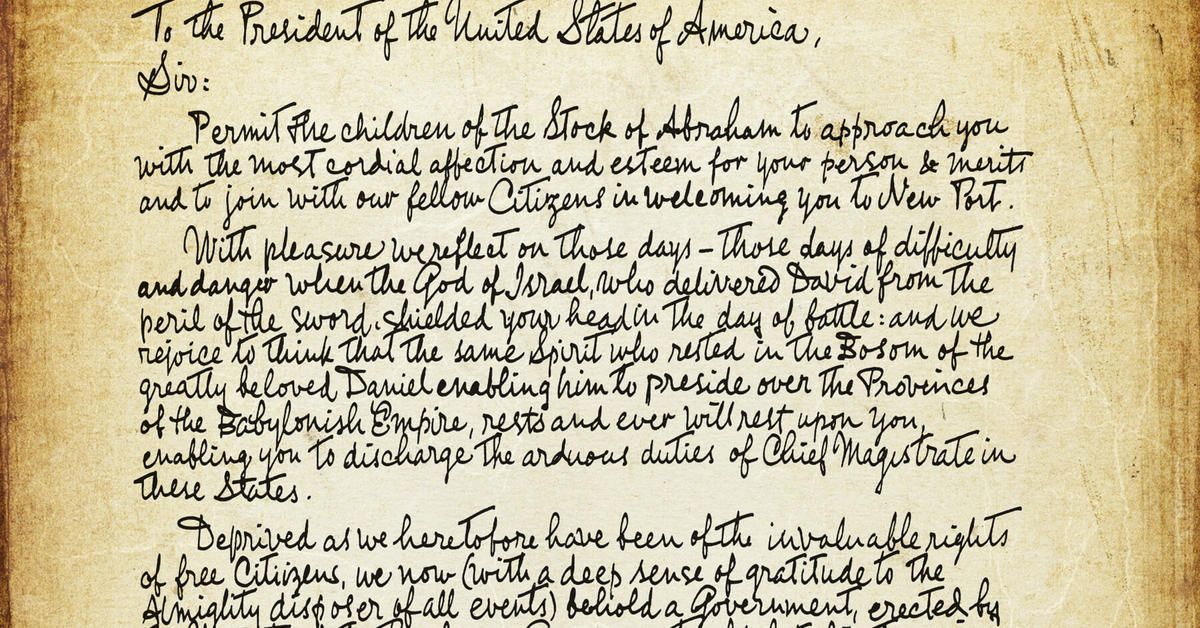 To the President of the United States of America,
Sir:
Permit the children of the Stock of Abraham to approach you
with the most cordial affection and esteem for your person & merits
and to join with our fellow Citizens in welcoming you to New Port.
With pleasure we reflect on those days – those days of difficulty
and danger when the God of Israel, who delivered David from the
peril of the sword, shielded your head in the day of battle: and we
rejoice to think that the same Spirit who rested in the Bosom of the
greatly beloved Daniel enabling him to preside over the Provinces
of the Babylonish Empire, rests and ever will rest upon you,
enabling you to discharge the arduous duties of Chief Magistrate in
these States.
Deprived as we heretofore have been of the invaluable rights
of free Citizens, we now (with a deep sense of gratitude to the
Almighty disposer of all events) behold a Government, erected by